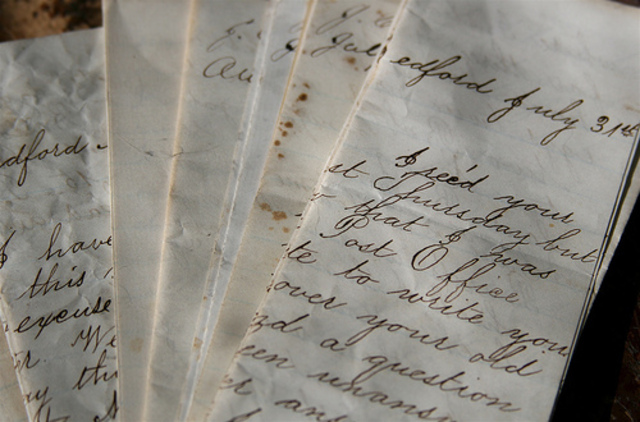 dford -
I have
this
excuse
r. We
J.
Au
J. C
Jul
edford July 31st
I rec'd your
st Thursday but
that I was
Post Office
te to write you
over your old
zd a question
een unansw
er ans